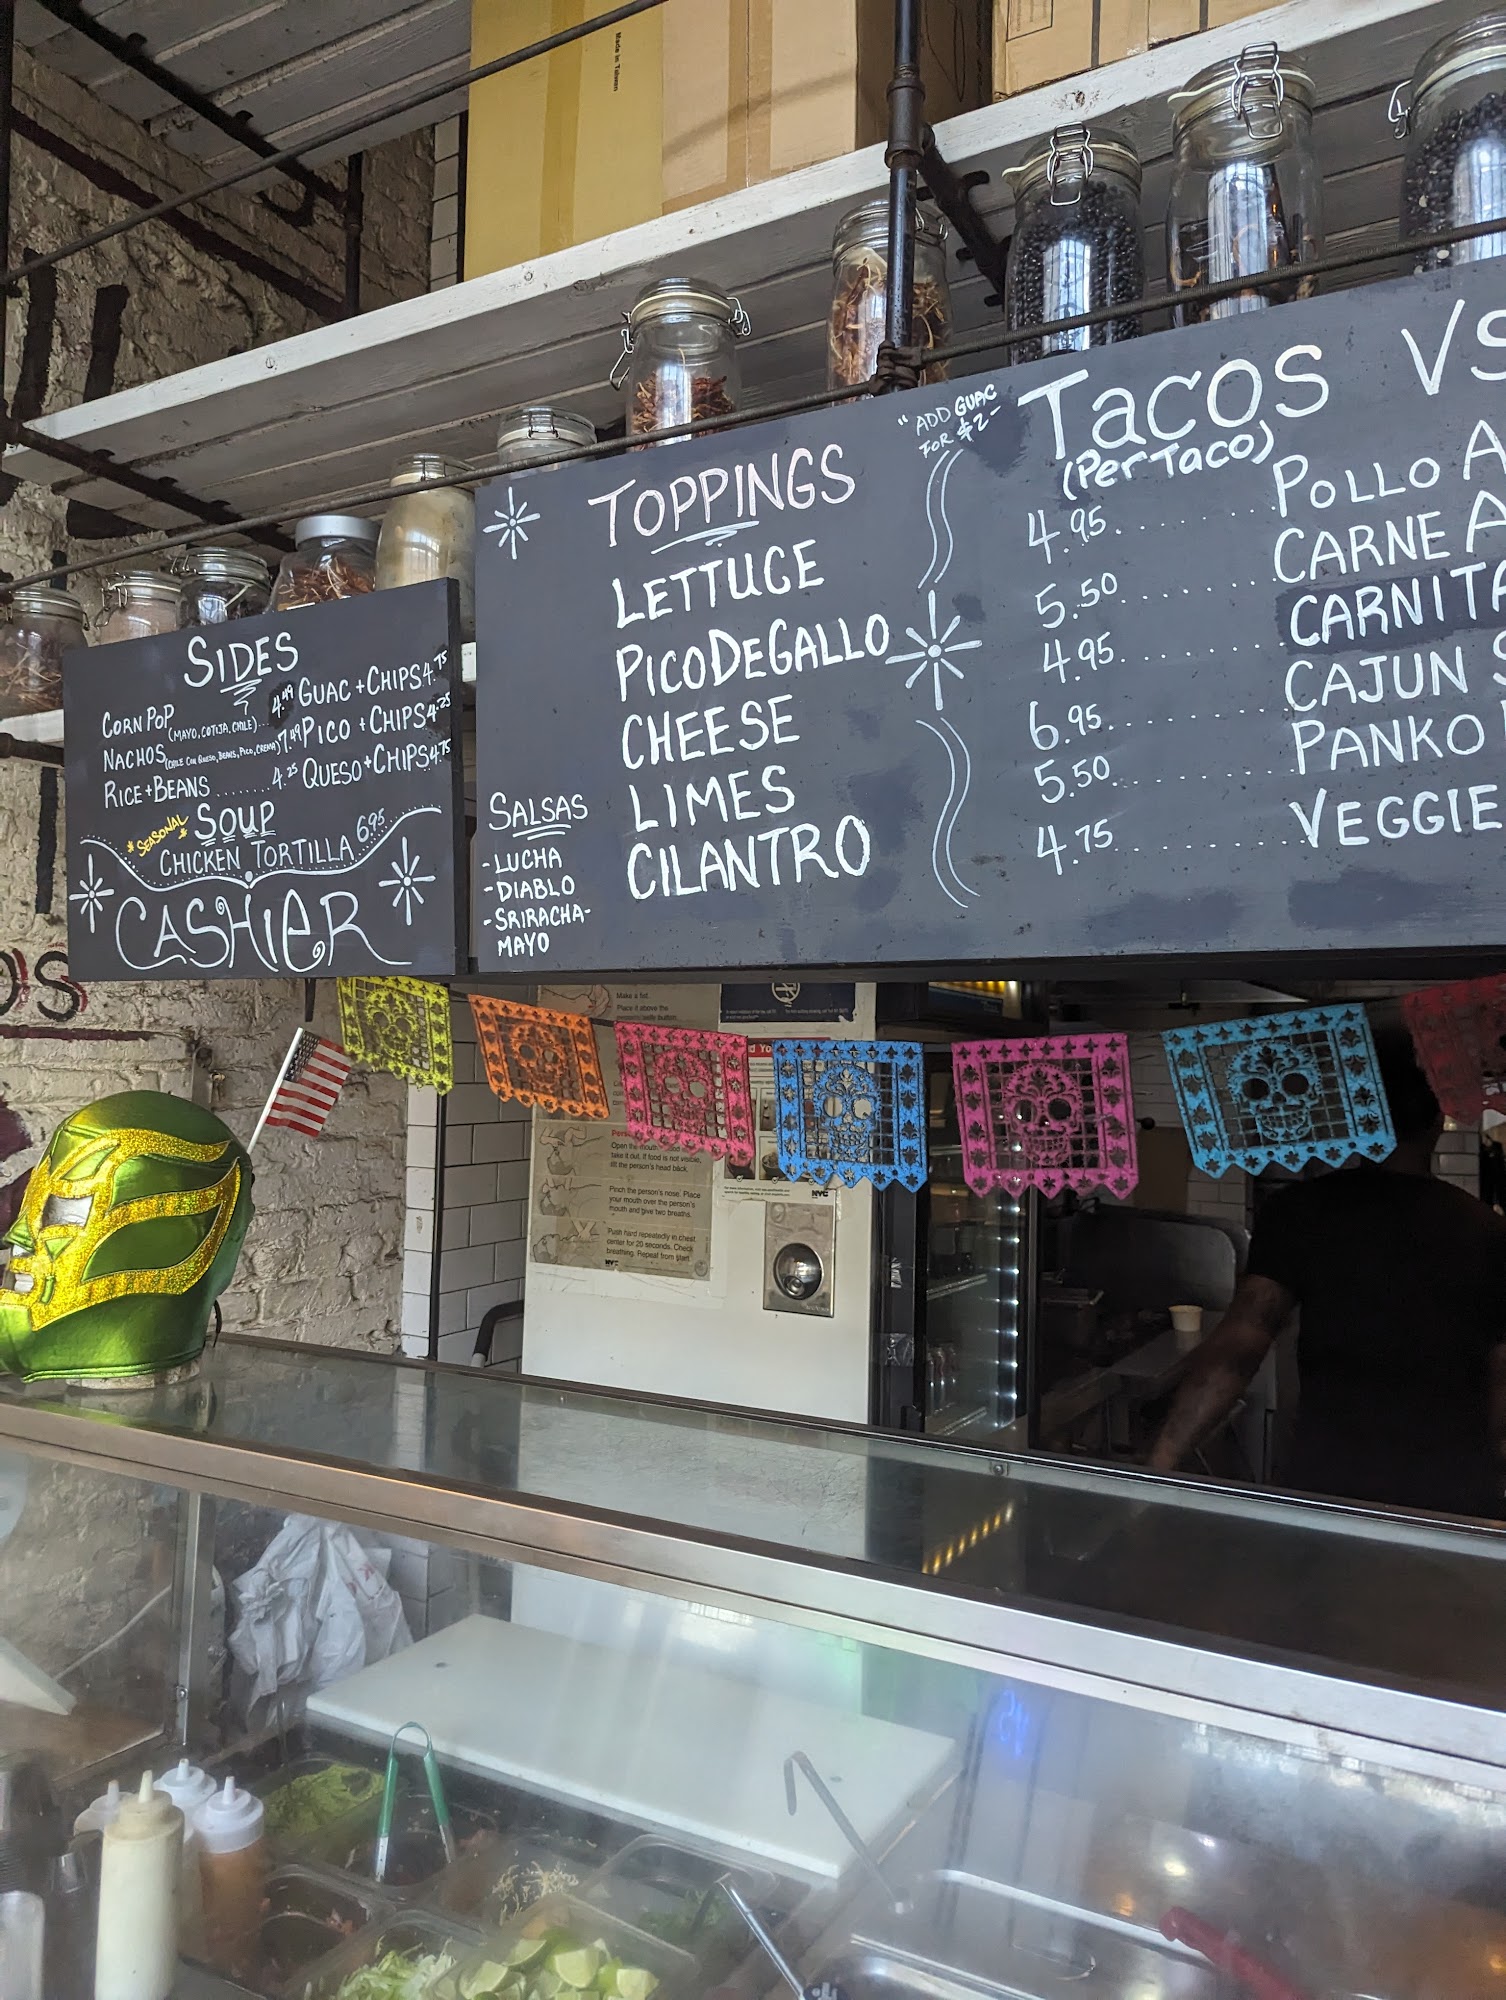 Made in Taiwan
SIDES
CORN POP (MAYO, COTIJA, CHILE)... 4.49
NACHOS (CHILE CON QUESO, BEANS, PICO, CREMA) 7.49
RICE+BEANS ........ 4.25
GUAC+CHIPS 4.75
PICO+CHIPS 4.25
QUESO+CHIPS 4.75
*SEASONAL* SOUP
CHICKEN TORTILLA 6.95
CASHIER
TOPPINGS
LETTUCE
PICO DE GALLO
CHEESE
LIMES
CILANTRO
SALSAS
-LUCHA
-DIABLO
-SRIRACHA-
MAYO
"ADD GUAC
FOR $2-
TACOS VS
(PER TACO)
4.95. . . . . . . . POLLO A
5.50. . . . . . . . CARNE A
4.95. . . . . . . . CARNITA
6.95. . . . . . . . CAJUN S
5.50. . . . . . . . PANKO
4.75. . . . . . . . VEGGIE
Make a fist.
Place it above the
Open the mouth.
take it out. If food is not visible,
tilt the person's head back.
Pinch the person's nose. Place
your mouth over the person's
mouth and give two breaths.
Push hard repeatedly in chest
center for 20 seconds. Check
breathing. Repeat from start
NYC
NYC